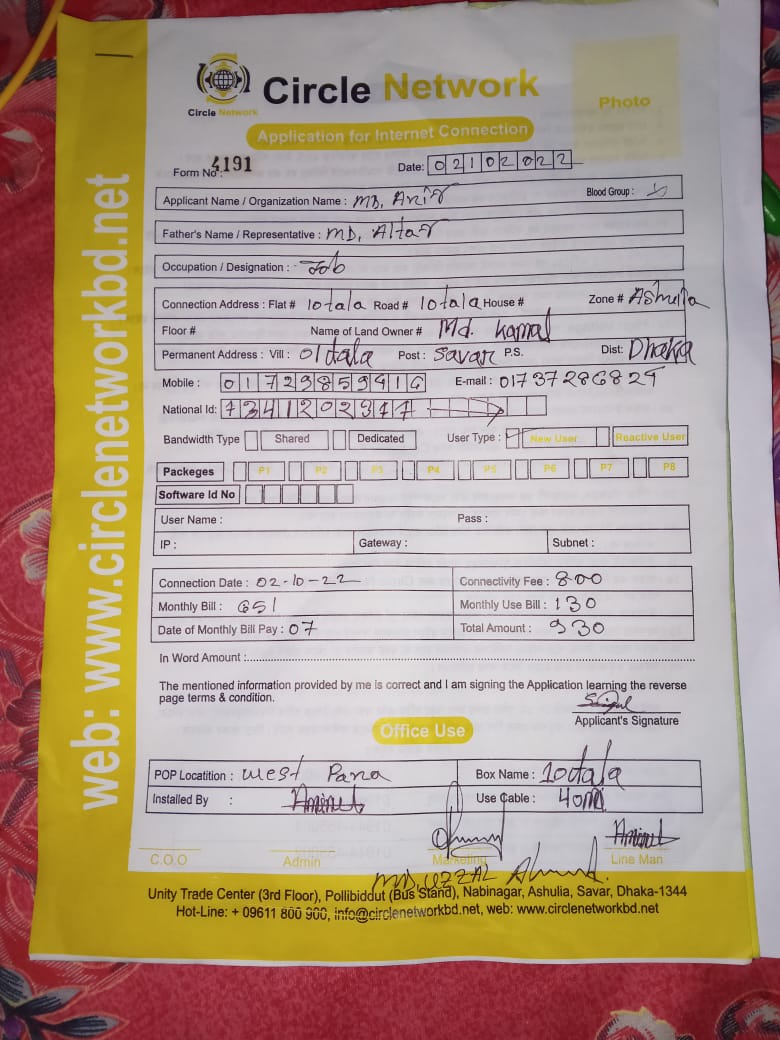 Circle Network
Circle Network
Photo
Application for Internet Connection
Form No : 4191
Date: 02102022
Applicant Name / Organization Name : MD, Arif
Blood Group :
Father's Name / Representative : MD, Altaf
Occupation / Designation : Job
Connection Address : Flat # 10tala Road # 10tala House # Zone # Ashulia
Floor # Name of Land Owner # Md. Kamal
Permanent Address : Vill : 01 tala Post : Savar P.S. Dist: Dhaka
Mobile : 01729859416 E-mail : 01737286829
National Id: 7341202377
Bandwidth Type Shared Dedicated User Type : New User Reactive User
Packeges P1 P2 P3 P4 P5 P6 P7 P8
Software Id No
User Name : Pass :
IP : Gateway : Subnet :
Connection Date : 02-10-22 Connectivity Fee : 800
Monthly Bill : 651 Monthly Use Bill : 130
Date of Monthly Bill Pay : 07 Total Amount : 930
In Word Amount :
The mentioned information provided by me is correct and I am signing the Application learning the reverse
page terms & condition.
Applicant's Signature
Office Use
POP Locatition : West Para Box Name : 10tala
Installed By : Use Cable : 40m
C.O.O Admin Marketing Line Man
MD. UZZAL
Unity Trade Center (3rd Floor), Pollibiddut (Bus Stand), Nabinagar, Ashulia, Savar, Dhaka-1344
Hot-Line: + 09611 800 900, info@circlenetworkbd.net, web: www.circlenetworkbd.net
web: www.circlenetworkbd.net